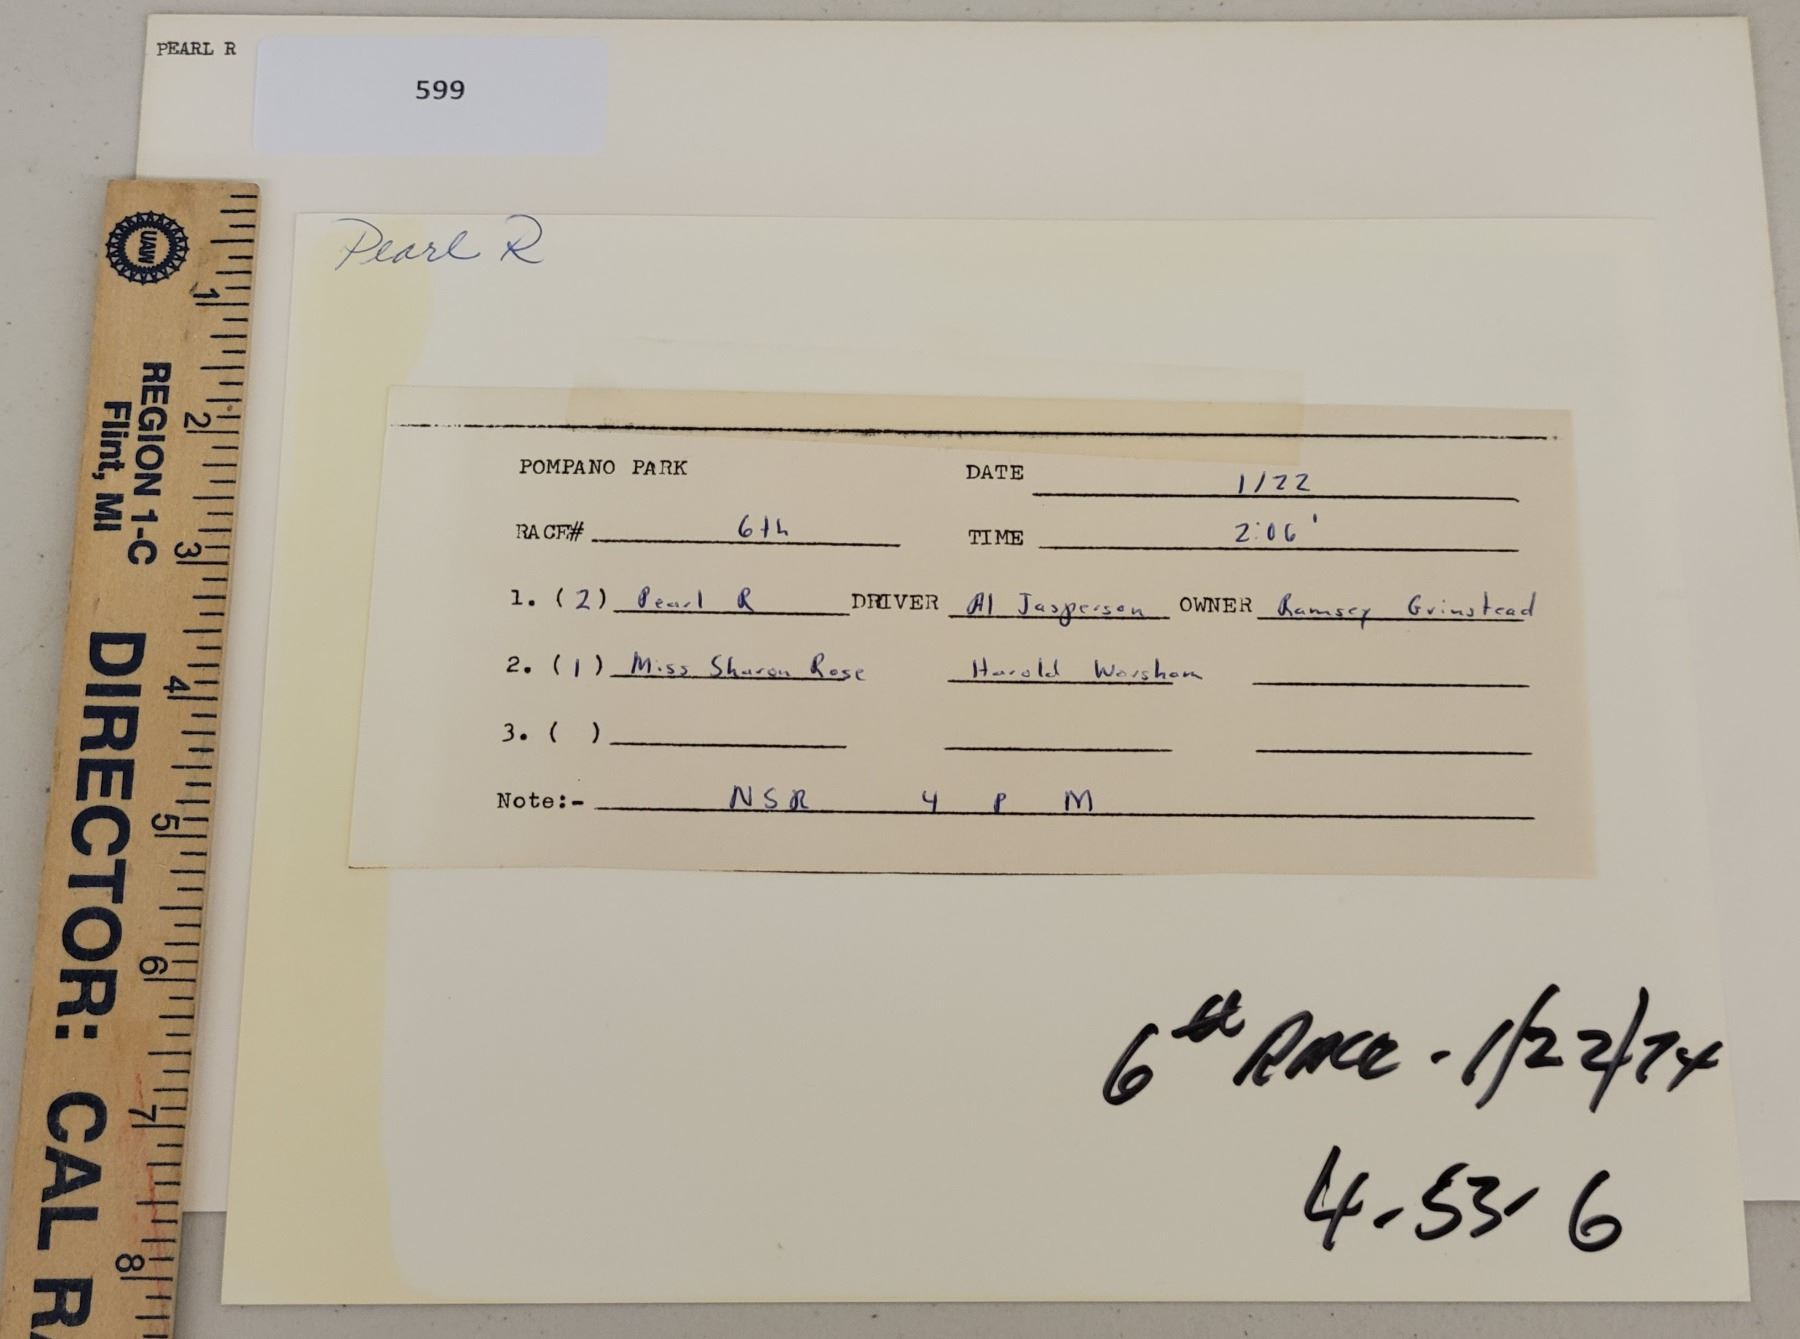 PEARL R
599
Pearl R
POMPANO PARK DATE 1/22
RACE# 6th TIME 2:06'
1. (2) Pearl R DRIVER Al Jasperson OWNER Ramsey Grinstead
2. (1) Miss Sharon Rose Harold Worsham
3. ( )
Note:- NSR 4 P M
6th RACE - 1/22/74
4-53-6
UAW
REGION 1-C
Flint, MI
DIRECTOR: CAL R
1
2
3
4
5
6
7
8